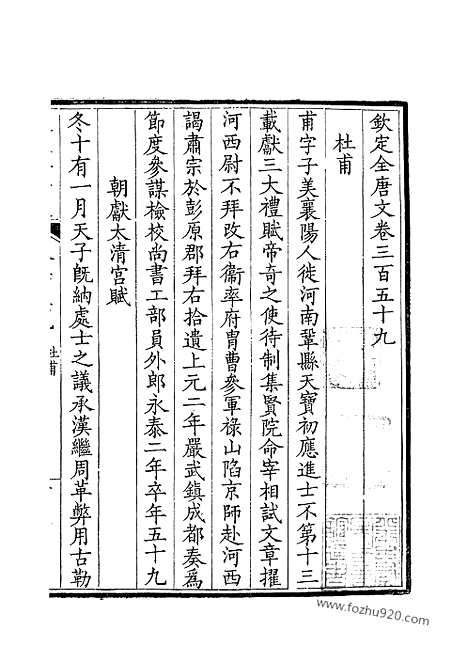 欽定全唐文卷三百五十九
杜甫
甫字子美襄陽人徙河南鞏縣天寶初應進士不第十三
載獻三大禮賦帝奇之使待制集賢院命宰相試文章擢
河西尉不拜改右衞率府胄曹參軍祿山陷京師赴河西
謁肅宗於彭原郡拜右拾遺上元二年嚴武鎮成都奏爲
節度參謀檢校尚書工部員外郎永泰二年卒年五十九
朝獻太清宮賦
冬十有一月天子旣納處士之議承漢繼周革弊用古勒
杜甫
www.fozhu920.com